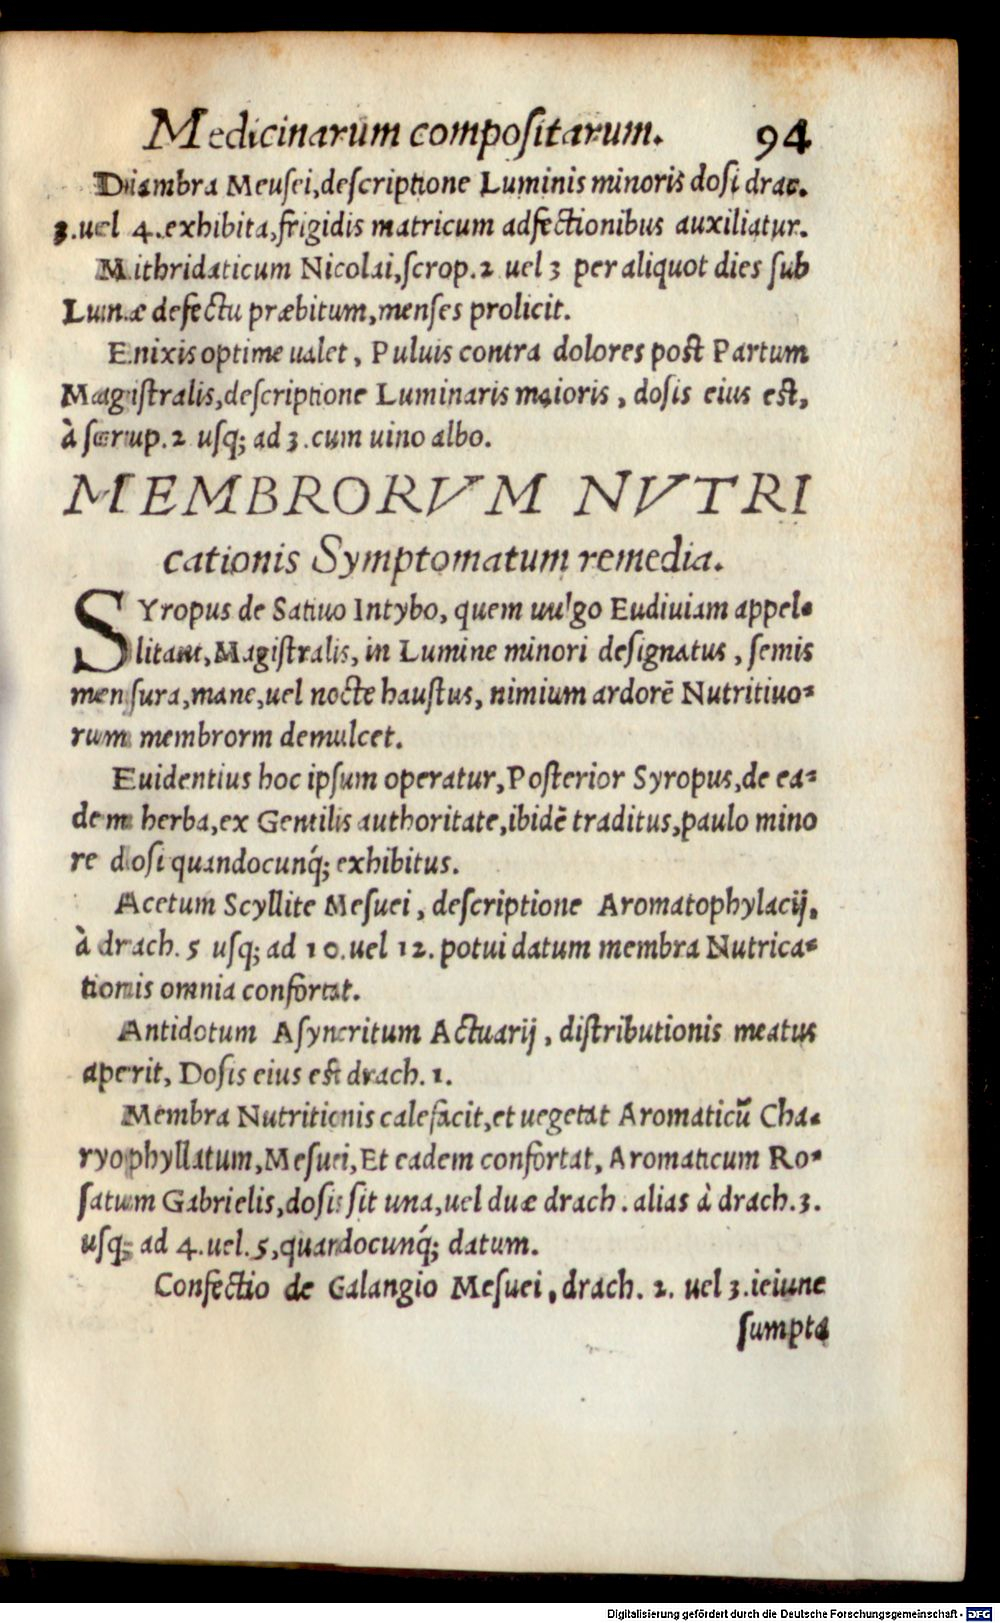 Medicinarum compositarum. 94
Diambra Meusei,descriptione Luminis minoris dosi drac.
3.uel 4.exhibita,frigidis matricum adfectionibus auxiliatur.
Mithridaticum Nicolai,scrop.2 uel 3 per aliquot dies sub
Lunæ defectu præbitum,menses prolicit.
Enixis optime ualet, Puluis contra dolores post Partum
Magistralis,descriptione Luminaris maioris, dosis eius est,
à scrup.2 usq; ad 3.cum uino albo.
MEMBRORVM NVTRI
cationis Symptomatum remedia.
SYropus de Satiuo Intybo, quem uulgo Eudiuiam appel-
litant,Magistralis, in Lumine minori designatus, semis
mensura,mane,uel nocte haustus, nimium ardorē Nutritiuo-
rum membrorm demulcet.
Euidentius hoc ipsum operatur,Posterior Syropus,de ea-
dem herba,ex Gentilis authoritate,ibidē traditus,paulo mino
re dosi quandocunq́; exhibitus.
Acetum Scyllite Mesuei, descriptione Aromatophylacij,
à drach. 5 usq; ad 10.uel 12. potui datum membra Nutrica-
tionis omnia confortat.
Antidotum Asyncritum Actuarij, distributionis meatus
aperit, Dosis eius est drach. 1.
Membra Nutritionis calefacit,et uegetat Aromaticū Cha-
ryophyllatum,Mesuei,Et eadem confortat, Aromaticum Ro-
satum Gabrielis,dosis sit una,uel duæ drach. alias à drach.3.
usq; ad 4.uel.5,quandocunq́; datum.
Confectio de Galangio Mesuei, drach. 2. uel 3.ieiune
sumpta
Digitalisierung gefördert durch die Deutsche Forschungsgemeinschaft - DFG